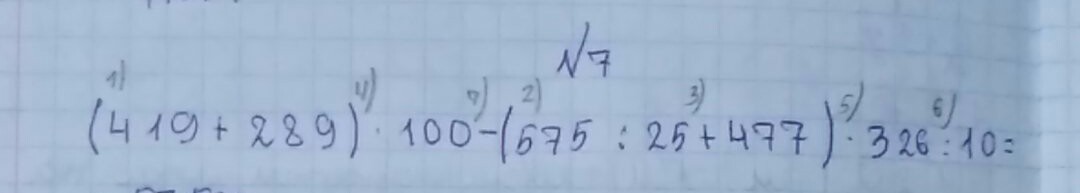 N7
1) 4) 7) 2) 3) 5) 6)
(419 + 289) · 100 - (575 : 25 + 477) · 326 : 10 =